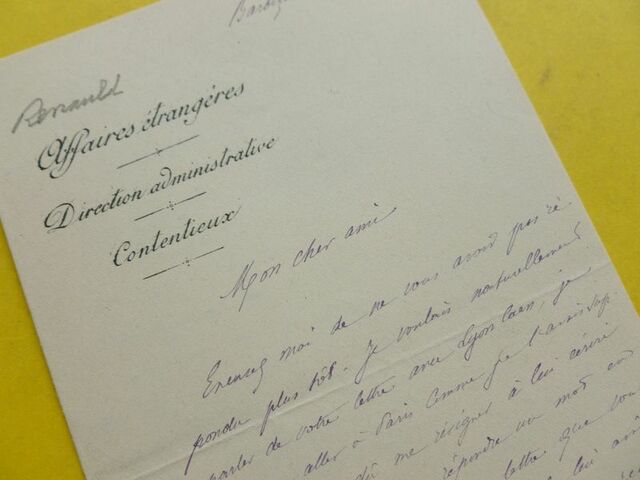 Renauld
Affaires étrangères
Direction administrative
Contentieux
Mon cher ami
Excusez moi de ne vous avoir pas ré
pondu plus tôt. Je voulais naturellement
parler de votre lettre avec Lyon Caen, je
aller à Paris comme je l'avais sup
dû me résigner à lui écrire
répondre un mot en
lettre que vous
lui